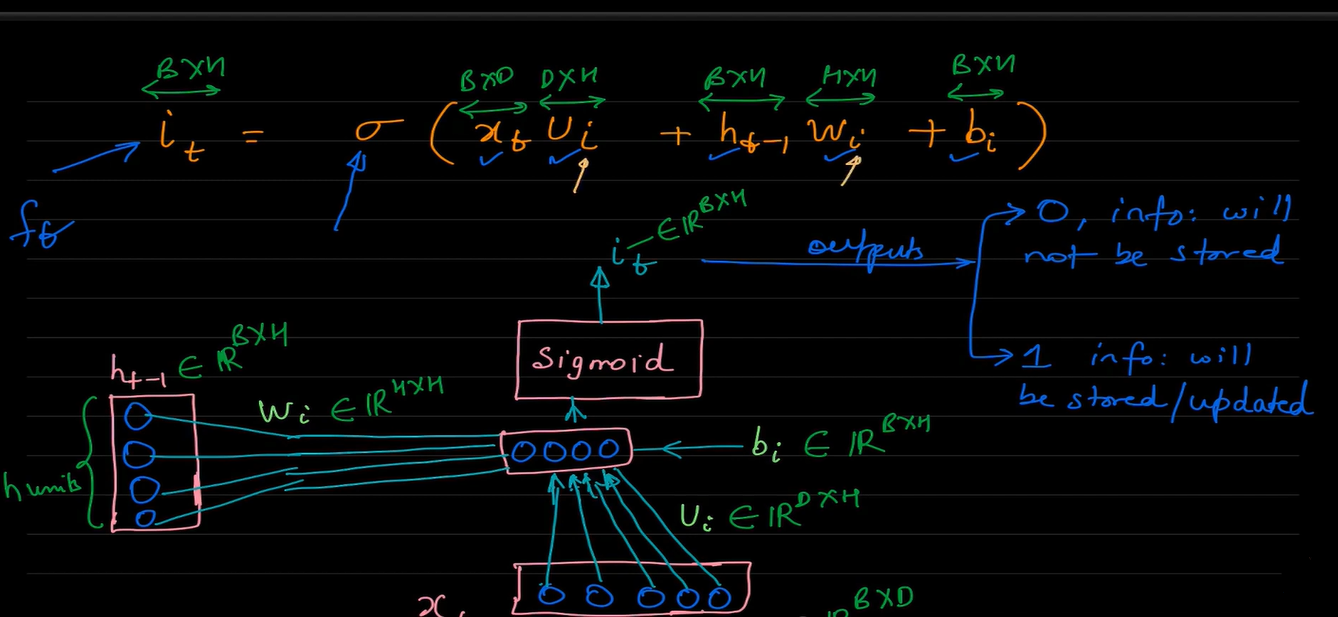 B×H B×D D×H B×H H×H B×H
i_t = σ ( x_t U_i + h_{t-1} W_i + b_i )
f_t
i_t ∈ ℝ^{B×H} outputs
0, info: will
not be stored
1 info: will
be stored/updated
Sigmoid
h_{t-1} ∈ ℝ^{B×H}
W_i ∈ ℝ^{H×H}
b_i ∈ ℝ^{B×H}
h units
U_i ∈ ℝ^{D×H}
x
ℝ^{B×D}